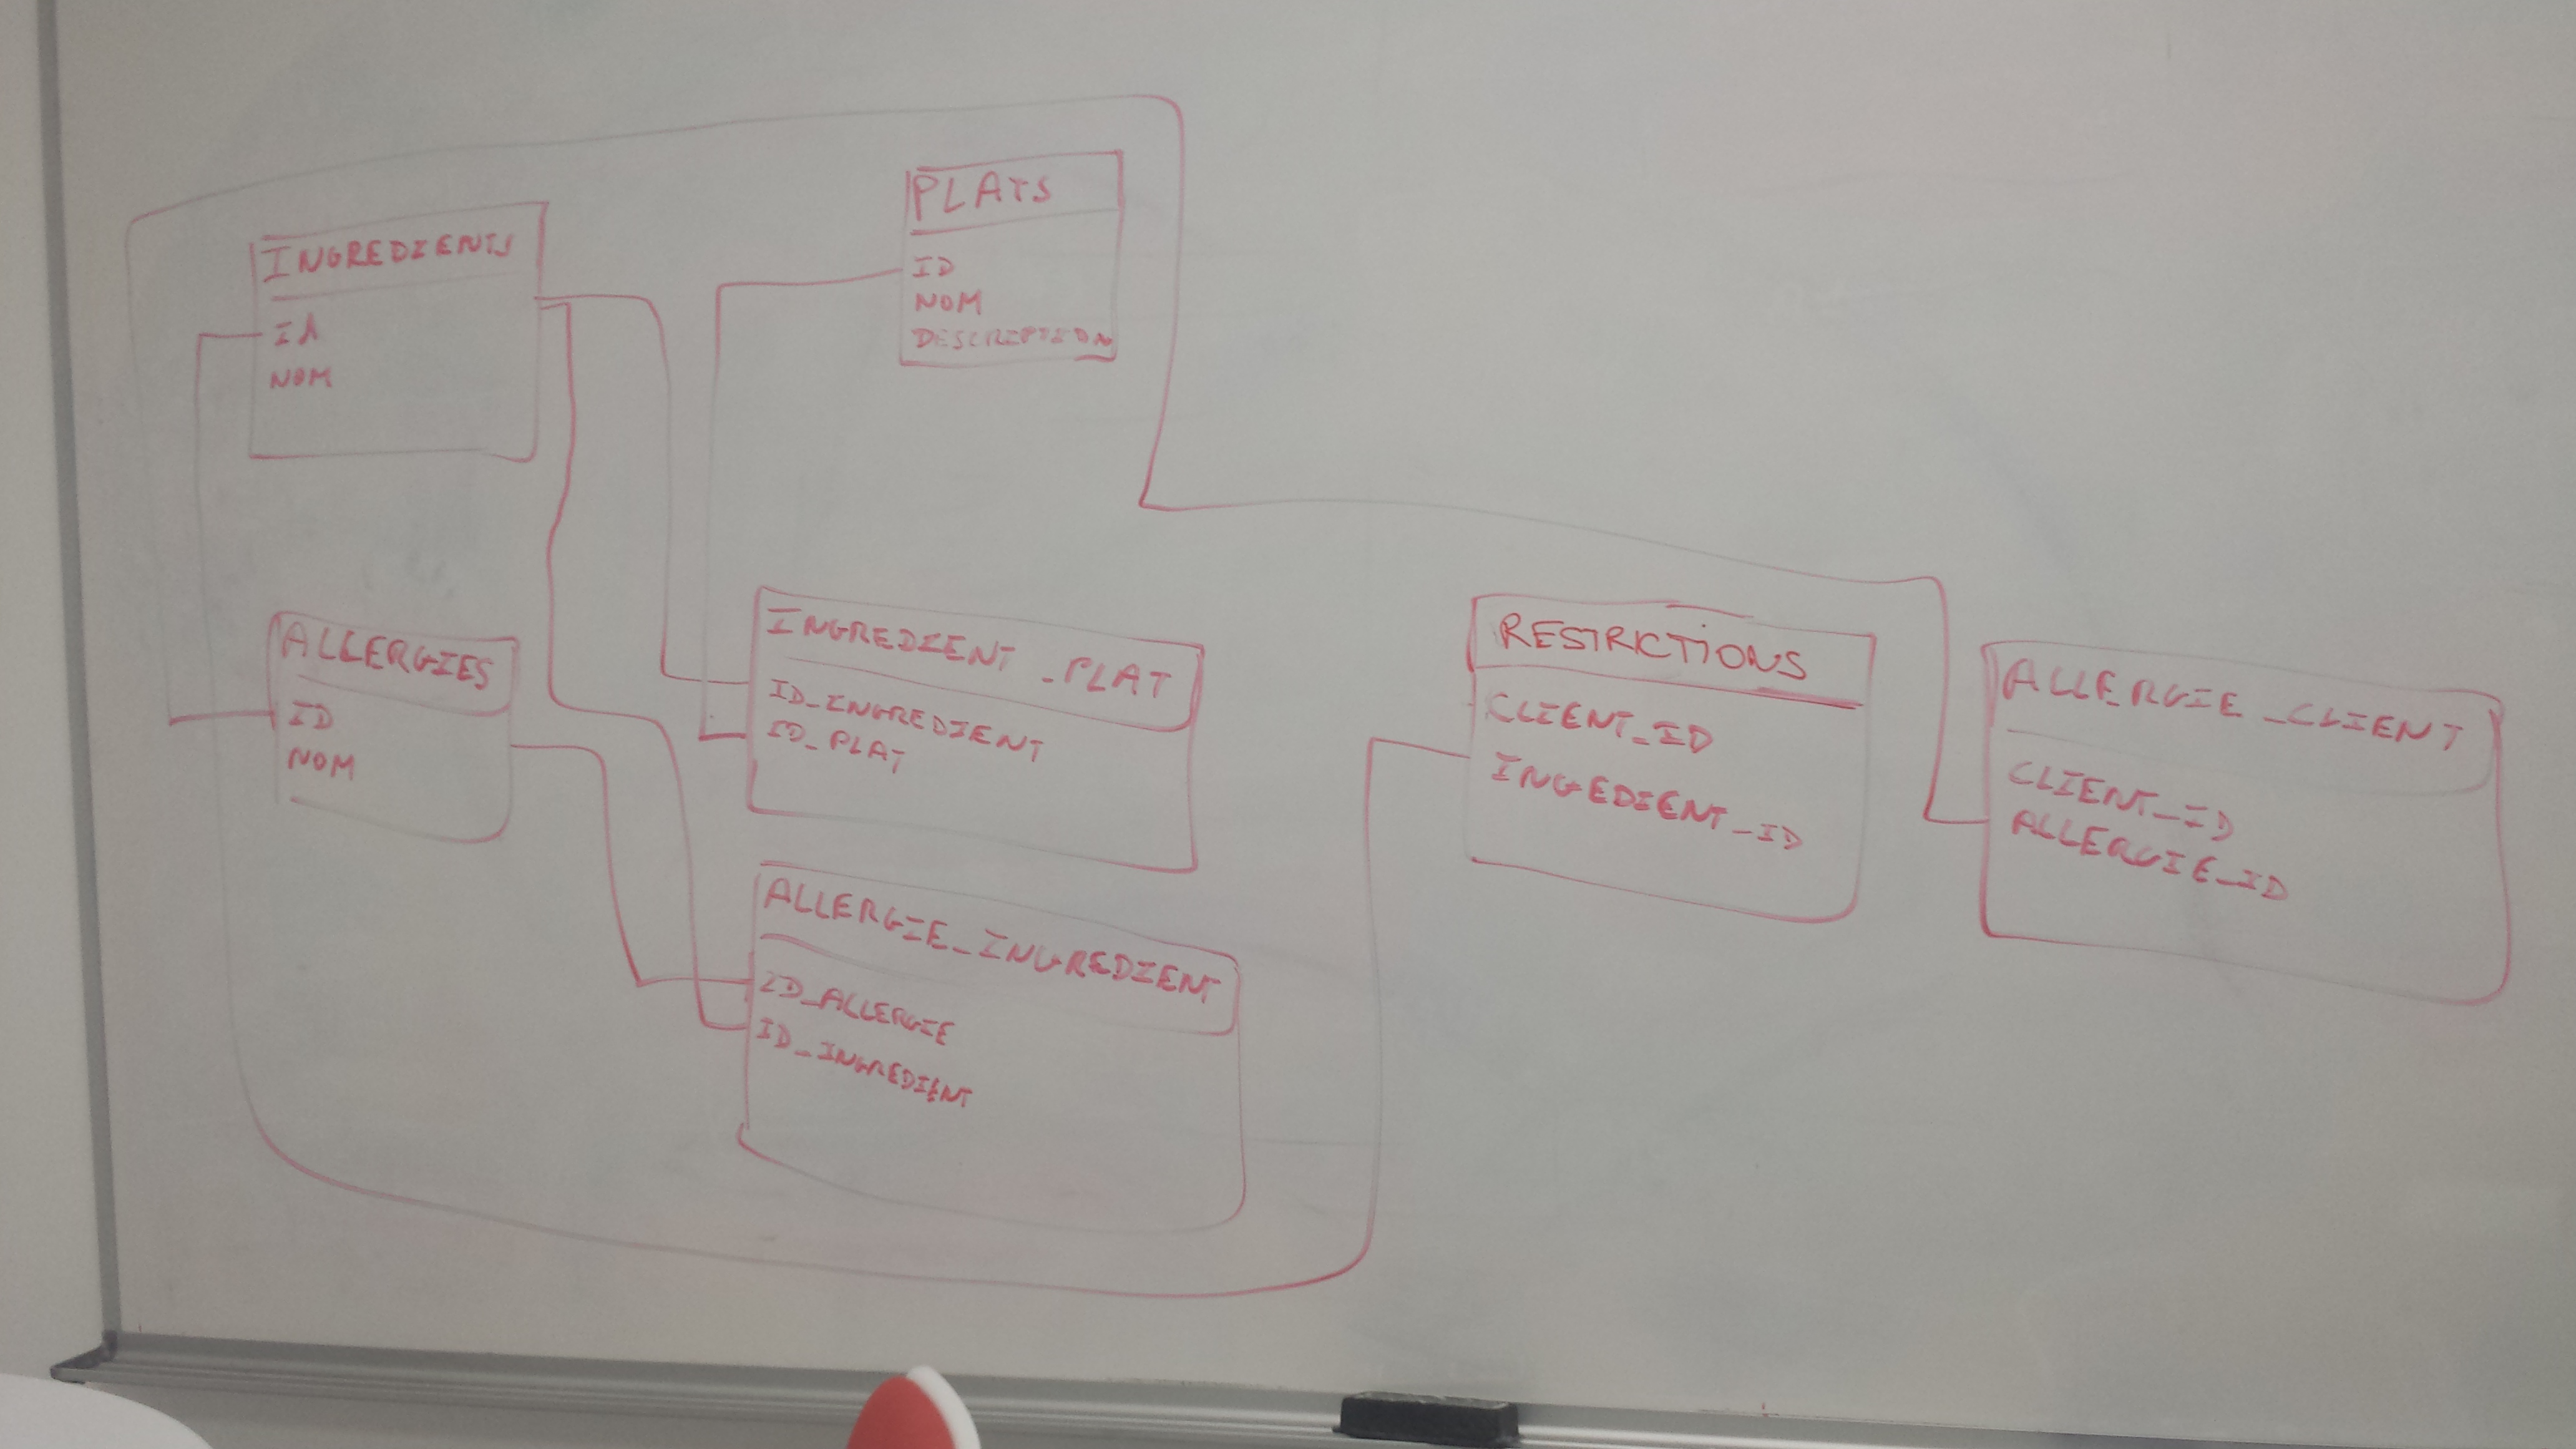 PLATS
ID
NOM
DESCRIPTION
INGREDIENTS
ID
NOM
ALLERGIES
ID
NOM
INGREDIENT_PLAT
ID_INGREDIENT
ID_PLAT
ALLERGIE_INGREDIENT
ID_ALLERGIE
ID_INGREDIENT
RESTRICTIONS
CLIENT_ID
INGEDIENT_ID
ALLERGIE_CLIENT
CLIENT_ID
ALLERGIE_ID